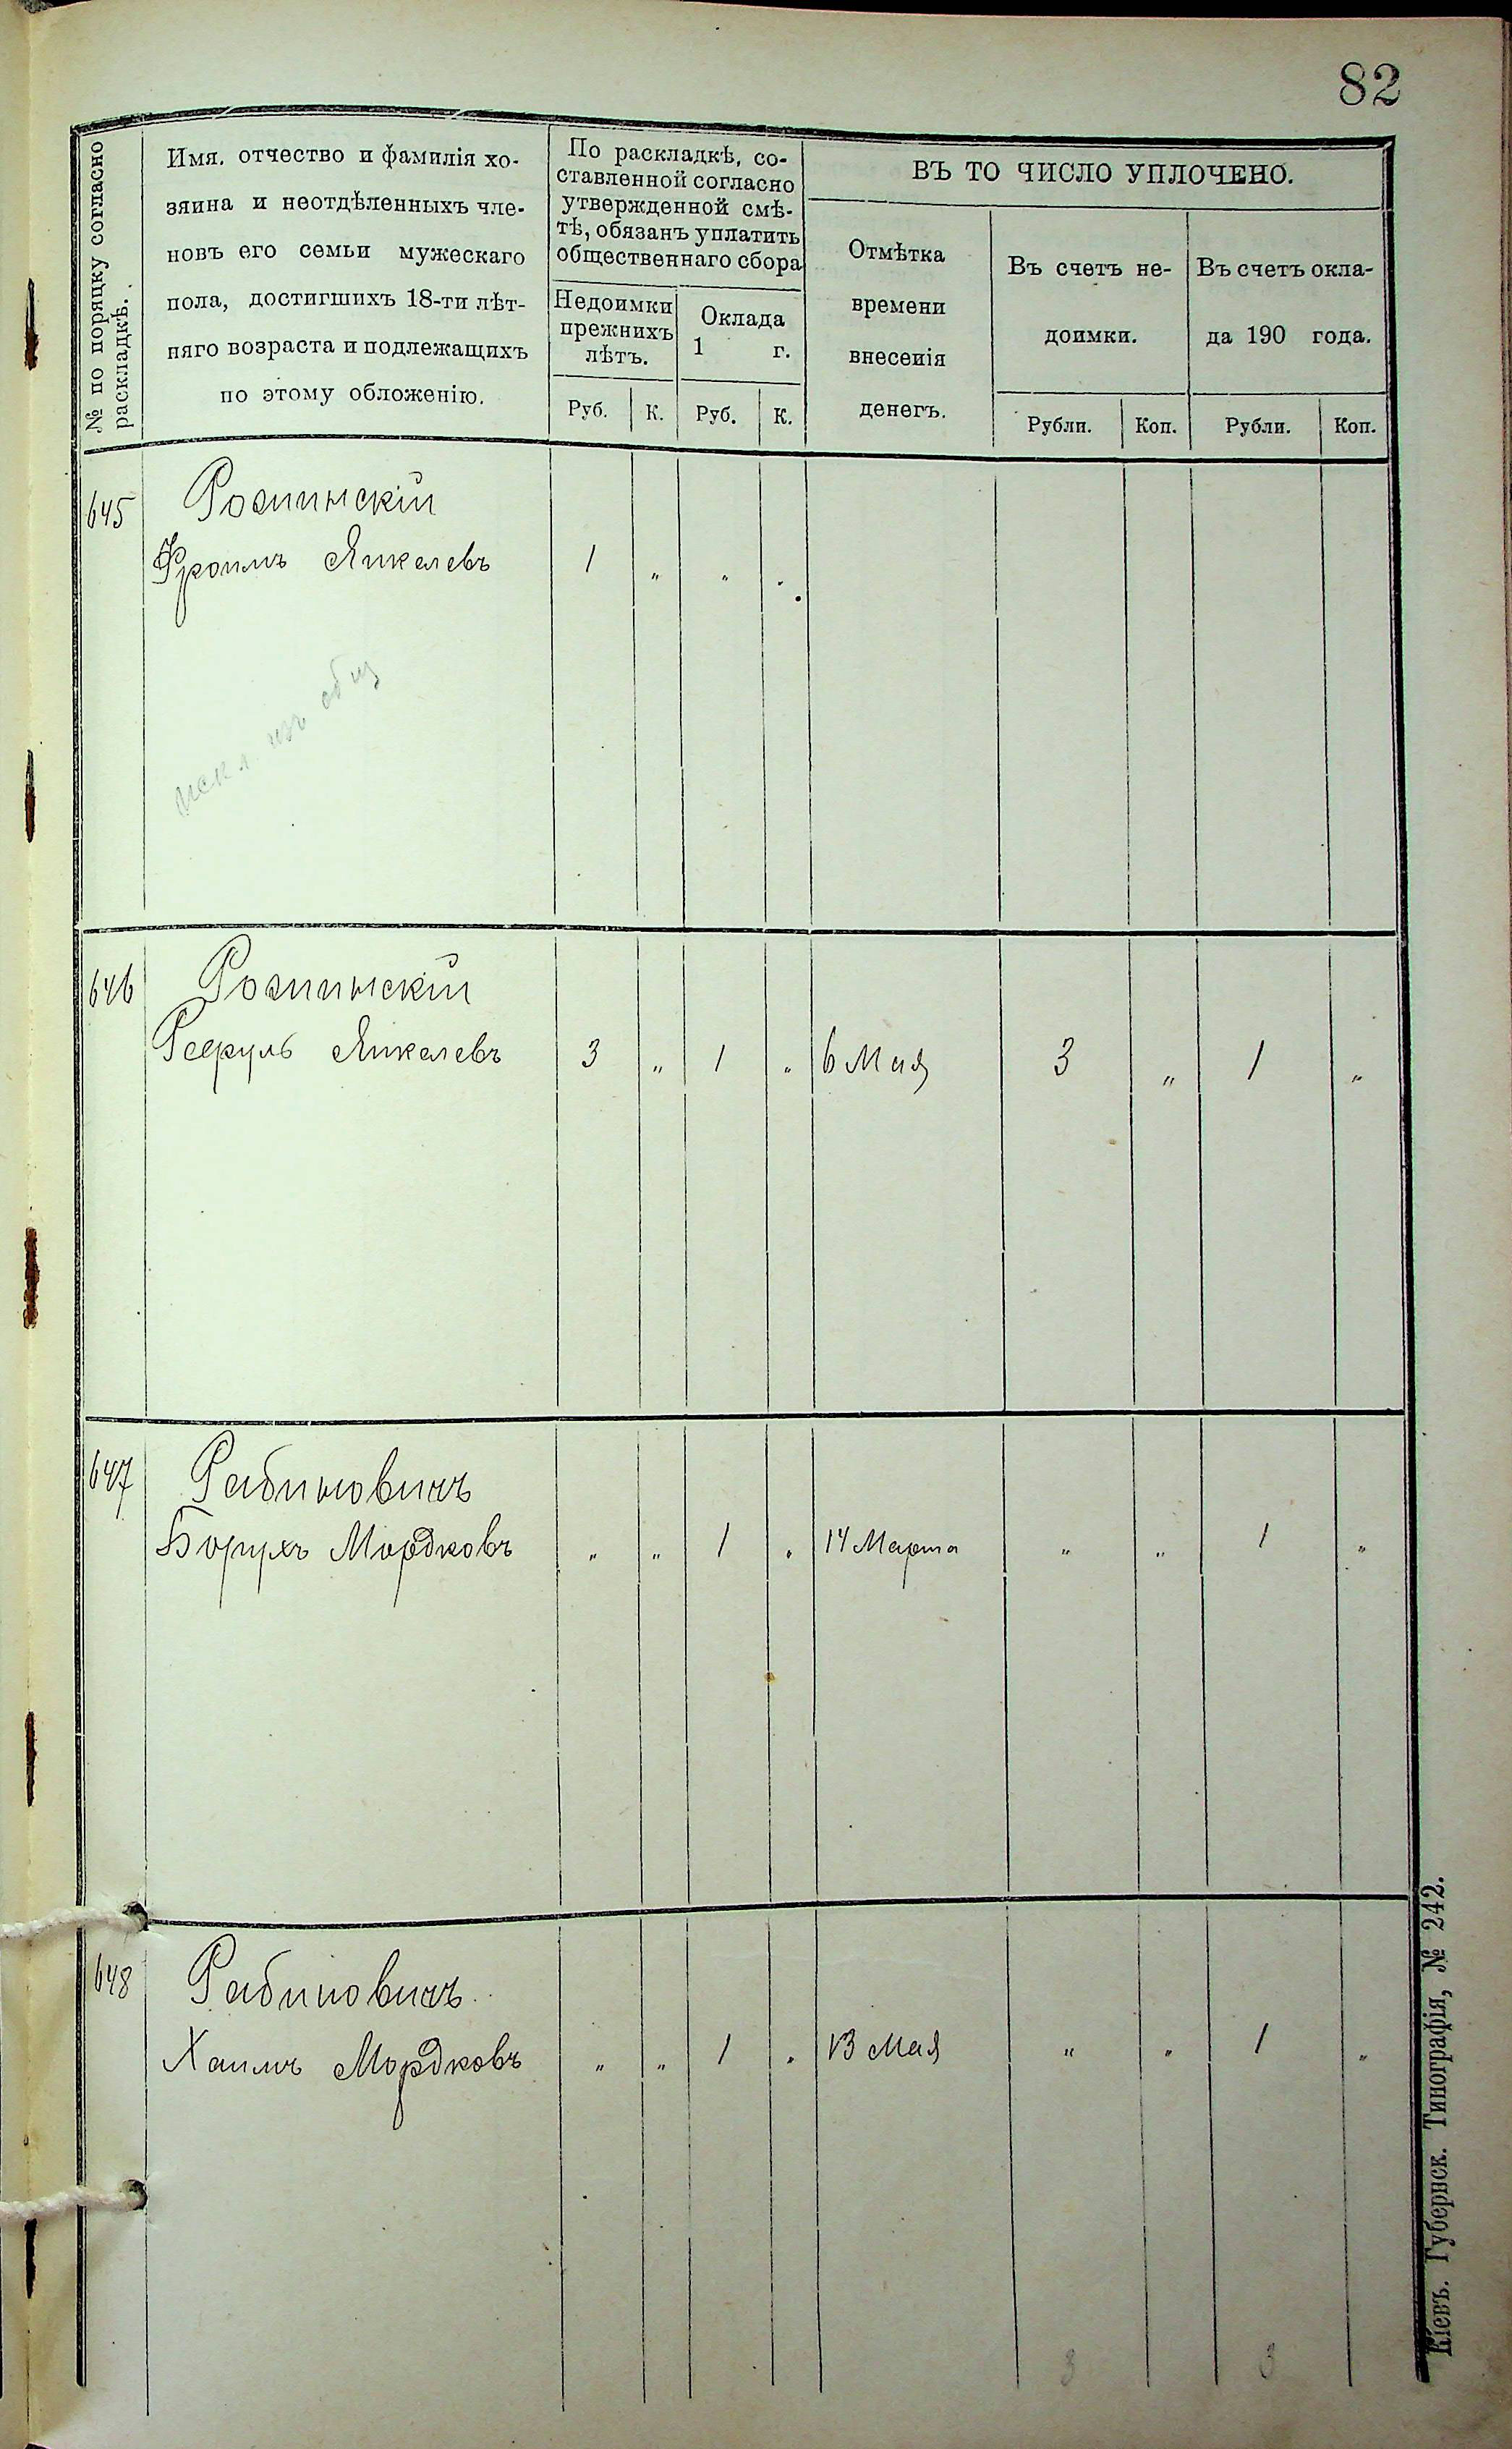 82
№ по порядку согласно
раскладкѣ.
Имя, отчество и фамилія хо-
зяина и неотдѣленныхъ чле-
новъ его семьи мужескаго
пола, достигшихъ 18-ти лѣт-
няго возраста и подлежащихъ
по этому обложенію.
По раскладкѣ, со-
ставленной согласно
утвержденной смѣ-
тѣ, обязанъ уплатить
общественнаго сбора
Недоимки
прежнихъ
лѣтъ.
Оклада
1 г.
Руб. К. Руб. К.
ВЪ ТО ЧИСЛО УПЛОЧЕНО.
Отмѣтка
времени
внесенія
денегъ.
Въ счетъ не-
доимки.
Въ счетъ окла-
да 190 года.
Рубли. Коп. Рубли. Коп.
645
Фроимъ Янкелевъ 1 „ „ „
искл. изъ общ
646
Янкелевъ 3 „ 1 „ 6 Мая 3 „ 1 „
647 Рабиновичъ
Борухъ Мордковъ „ „ 1 „ 14 Марта „ „ 1 „
648 Рабиновичъ
Хаимъ Мордковъ „ „ 1 „ 13 Мая „ „ 1 „
3 3
Кіевъ. Губернск. Типографія, № 242.